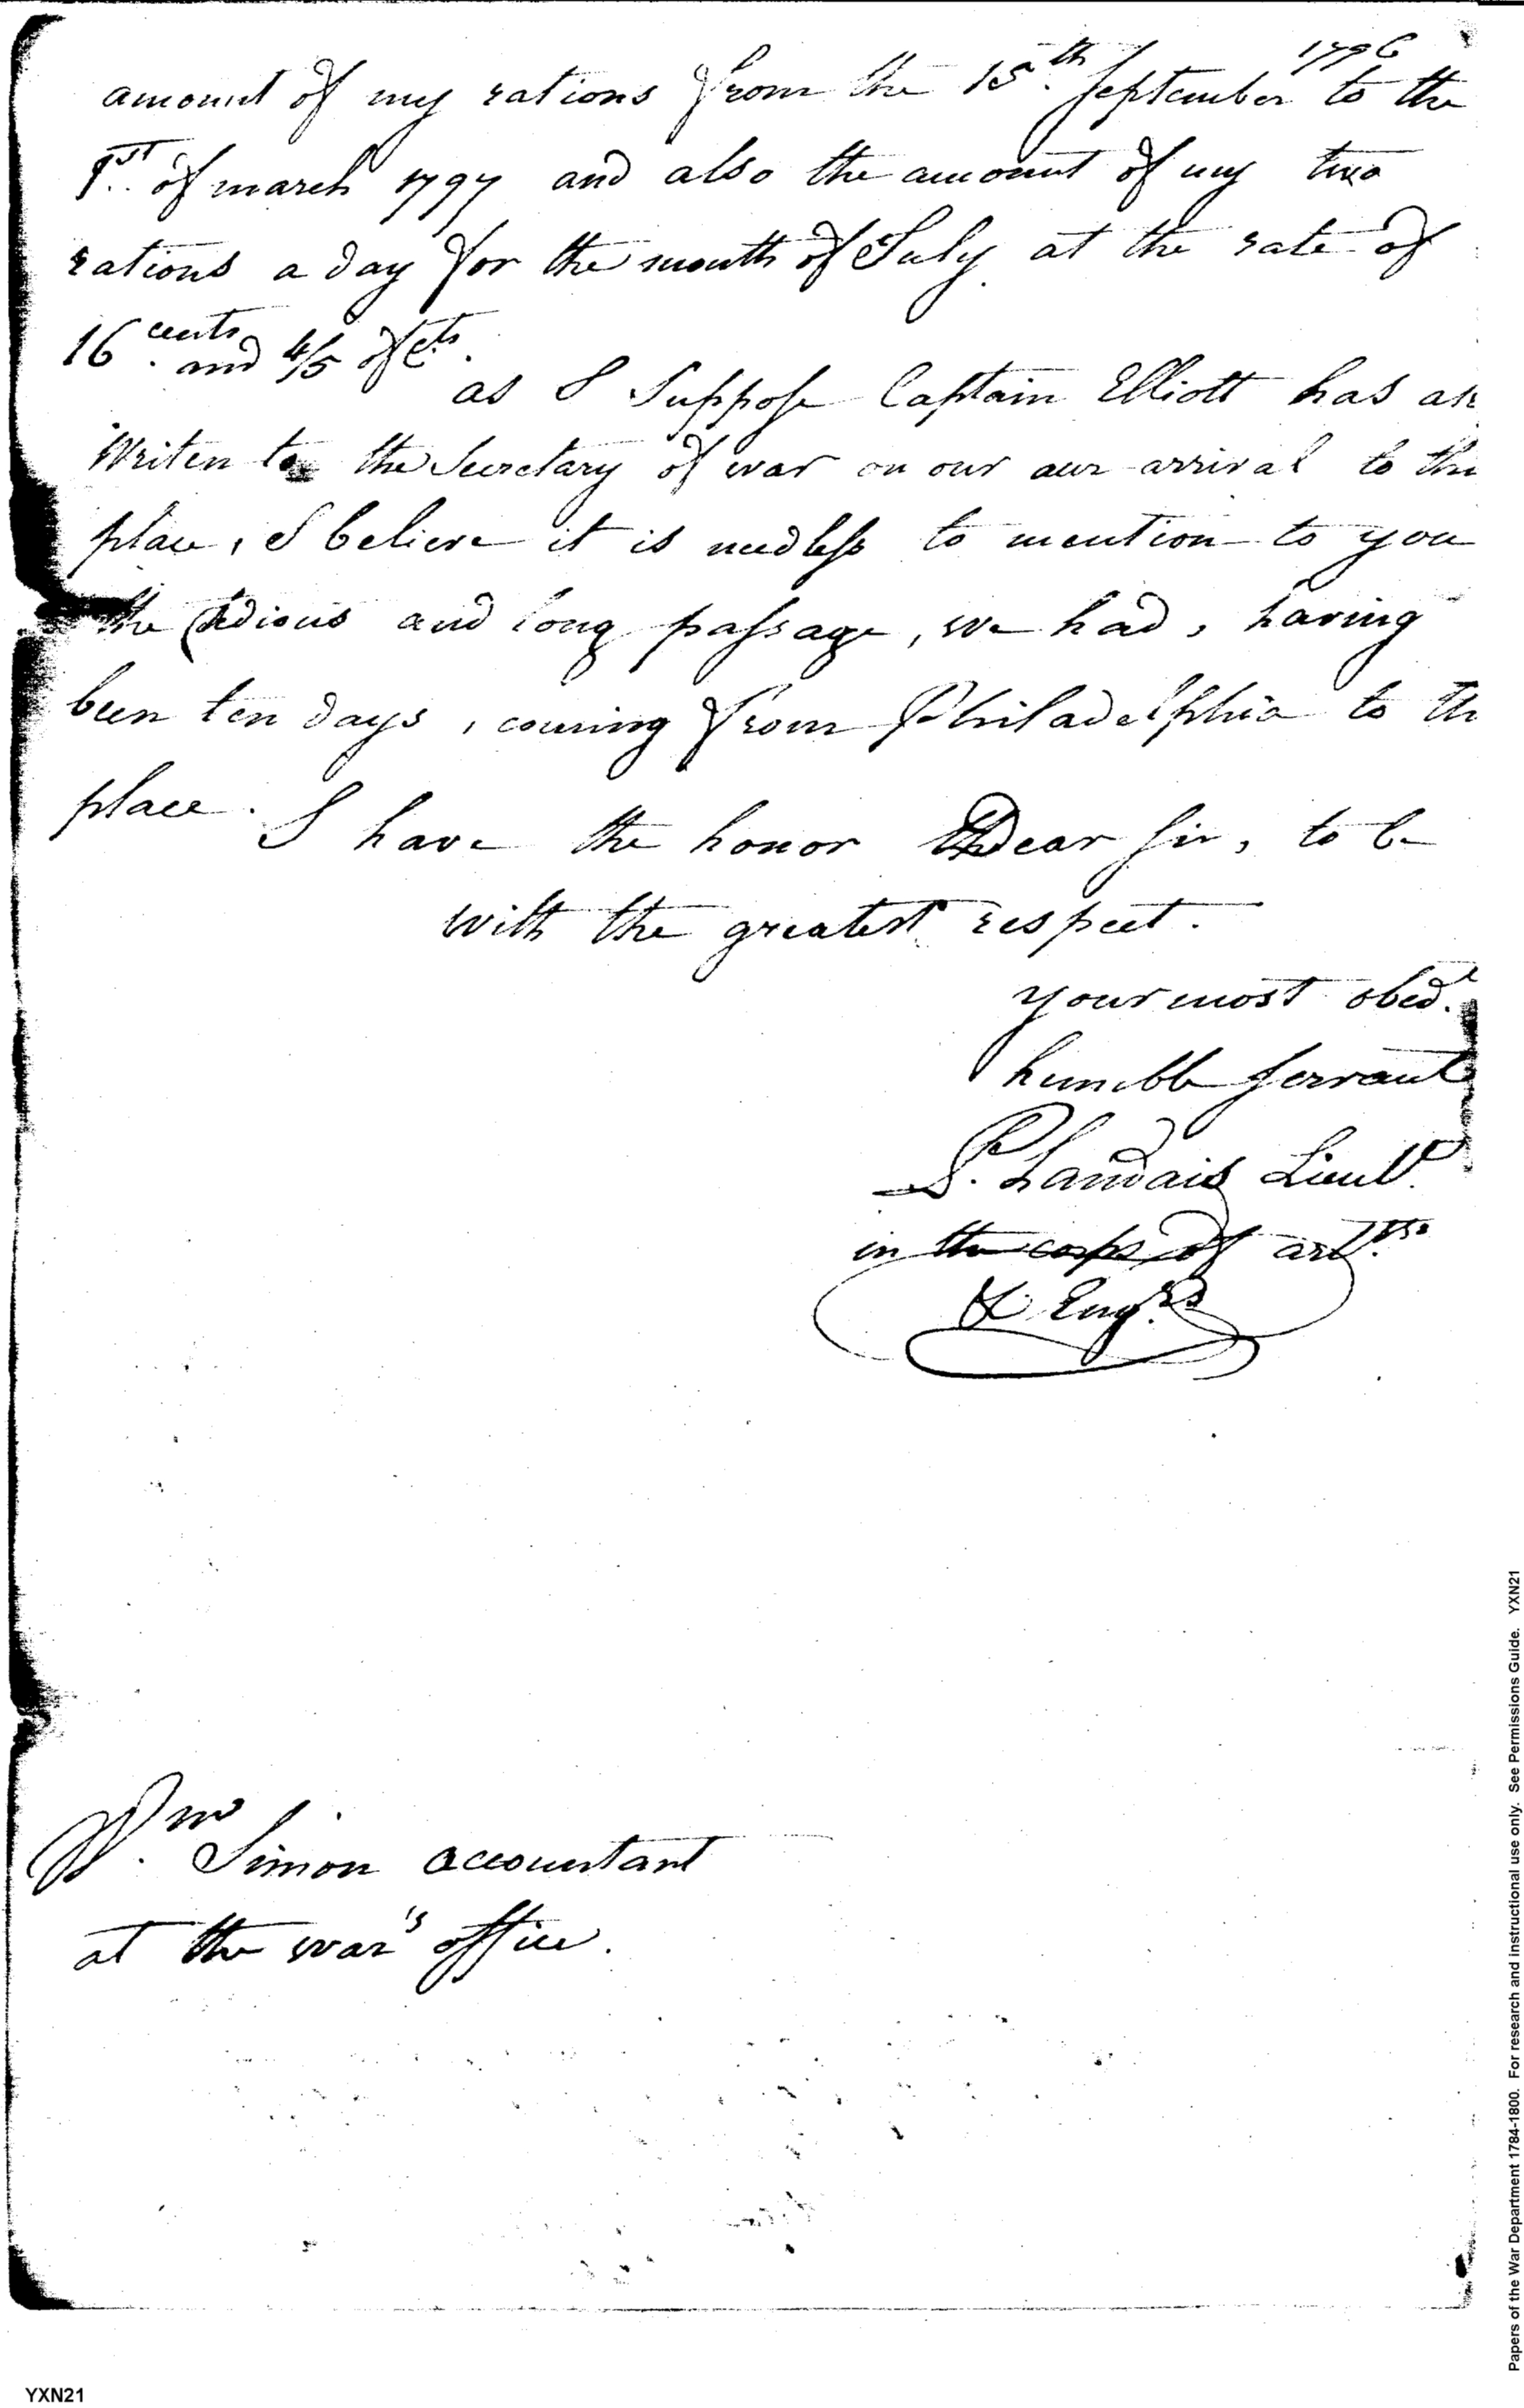 amount of my rations from the 15th. September 1796 to the
1st.. of march 1797 and also the amount of my two
rations a day for the month of July at the rate of
16 cents. and 4/5 of cts.
as I Suppose Captain Elliott has
Writen to the Secretary of war on our arrival to
place, I believe it is needless to mention to you
the tedious and long passage, we had, having
been ten days, coming from Philadelphia to
place. I have the honor Dear Sir, to be
with the greatest respect.
your most obedt.
humble Servant
P. Landais Lieut.
in the corps of
& Engrs.
Wm. Simon accountant
at the war's office.
YXN21
Papers of the War Department 1784-1800. For research and instructional use only. See Permissions Guide. YXN21